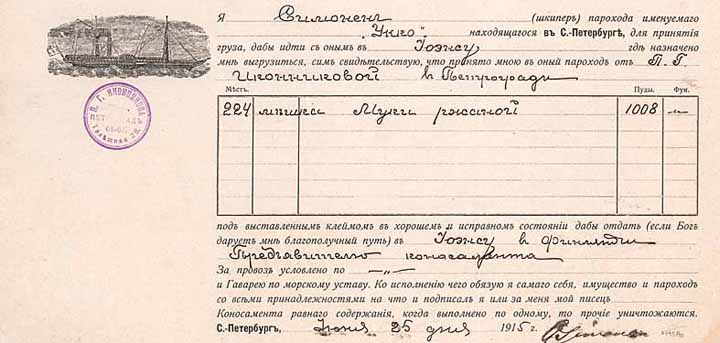 Я Симонен (шкиперъ) парохода именуемаго
"Укко" находящегося въ С.-Петербургѣ, для принятія
груза, дабы идти съ онымъ въ Іоэнсу гдѣ назначено
мнѣ выгрузиться, симъ свидѣтельствую, что принято мною въ оный пароходъ отъ П. Г.
Иконниковой въ Петроградѣ
Мѣстъ. Пуды. Фун.
224 мѣшка Муки ржаной 1008 "
подъ выставленнымъ клеймомъ въ хорошемъ и исправномъ состояніи дабы отдать (если Богъ
даруетъ мнѣ благополучный путь) въ Іоэнсу въ Финляндіи
Предъявителю коносамента
За провозъ условлено по —„—
и Гаварею по морскому уставу. Ко исполненію чего обязую я самаго себя, имущество и пароходъ
со всѣми принадлежностями на что и подписалъ я или за меня мой писецъ
Коносамента равнаго содержанія, когда выполнено по одному, то прочіе уничтожаются.
С.-Петербургъ, Іюня 25 дня 1915 г. Simonen
П. Г. ИКОННИКОВА